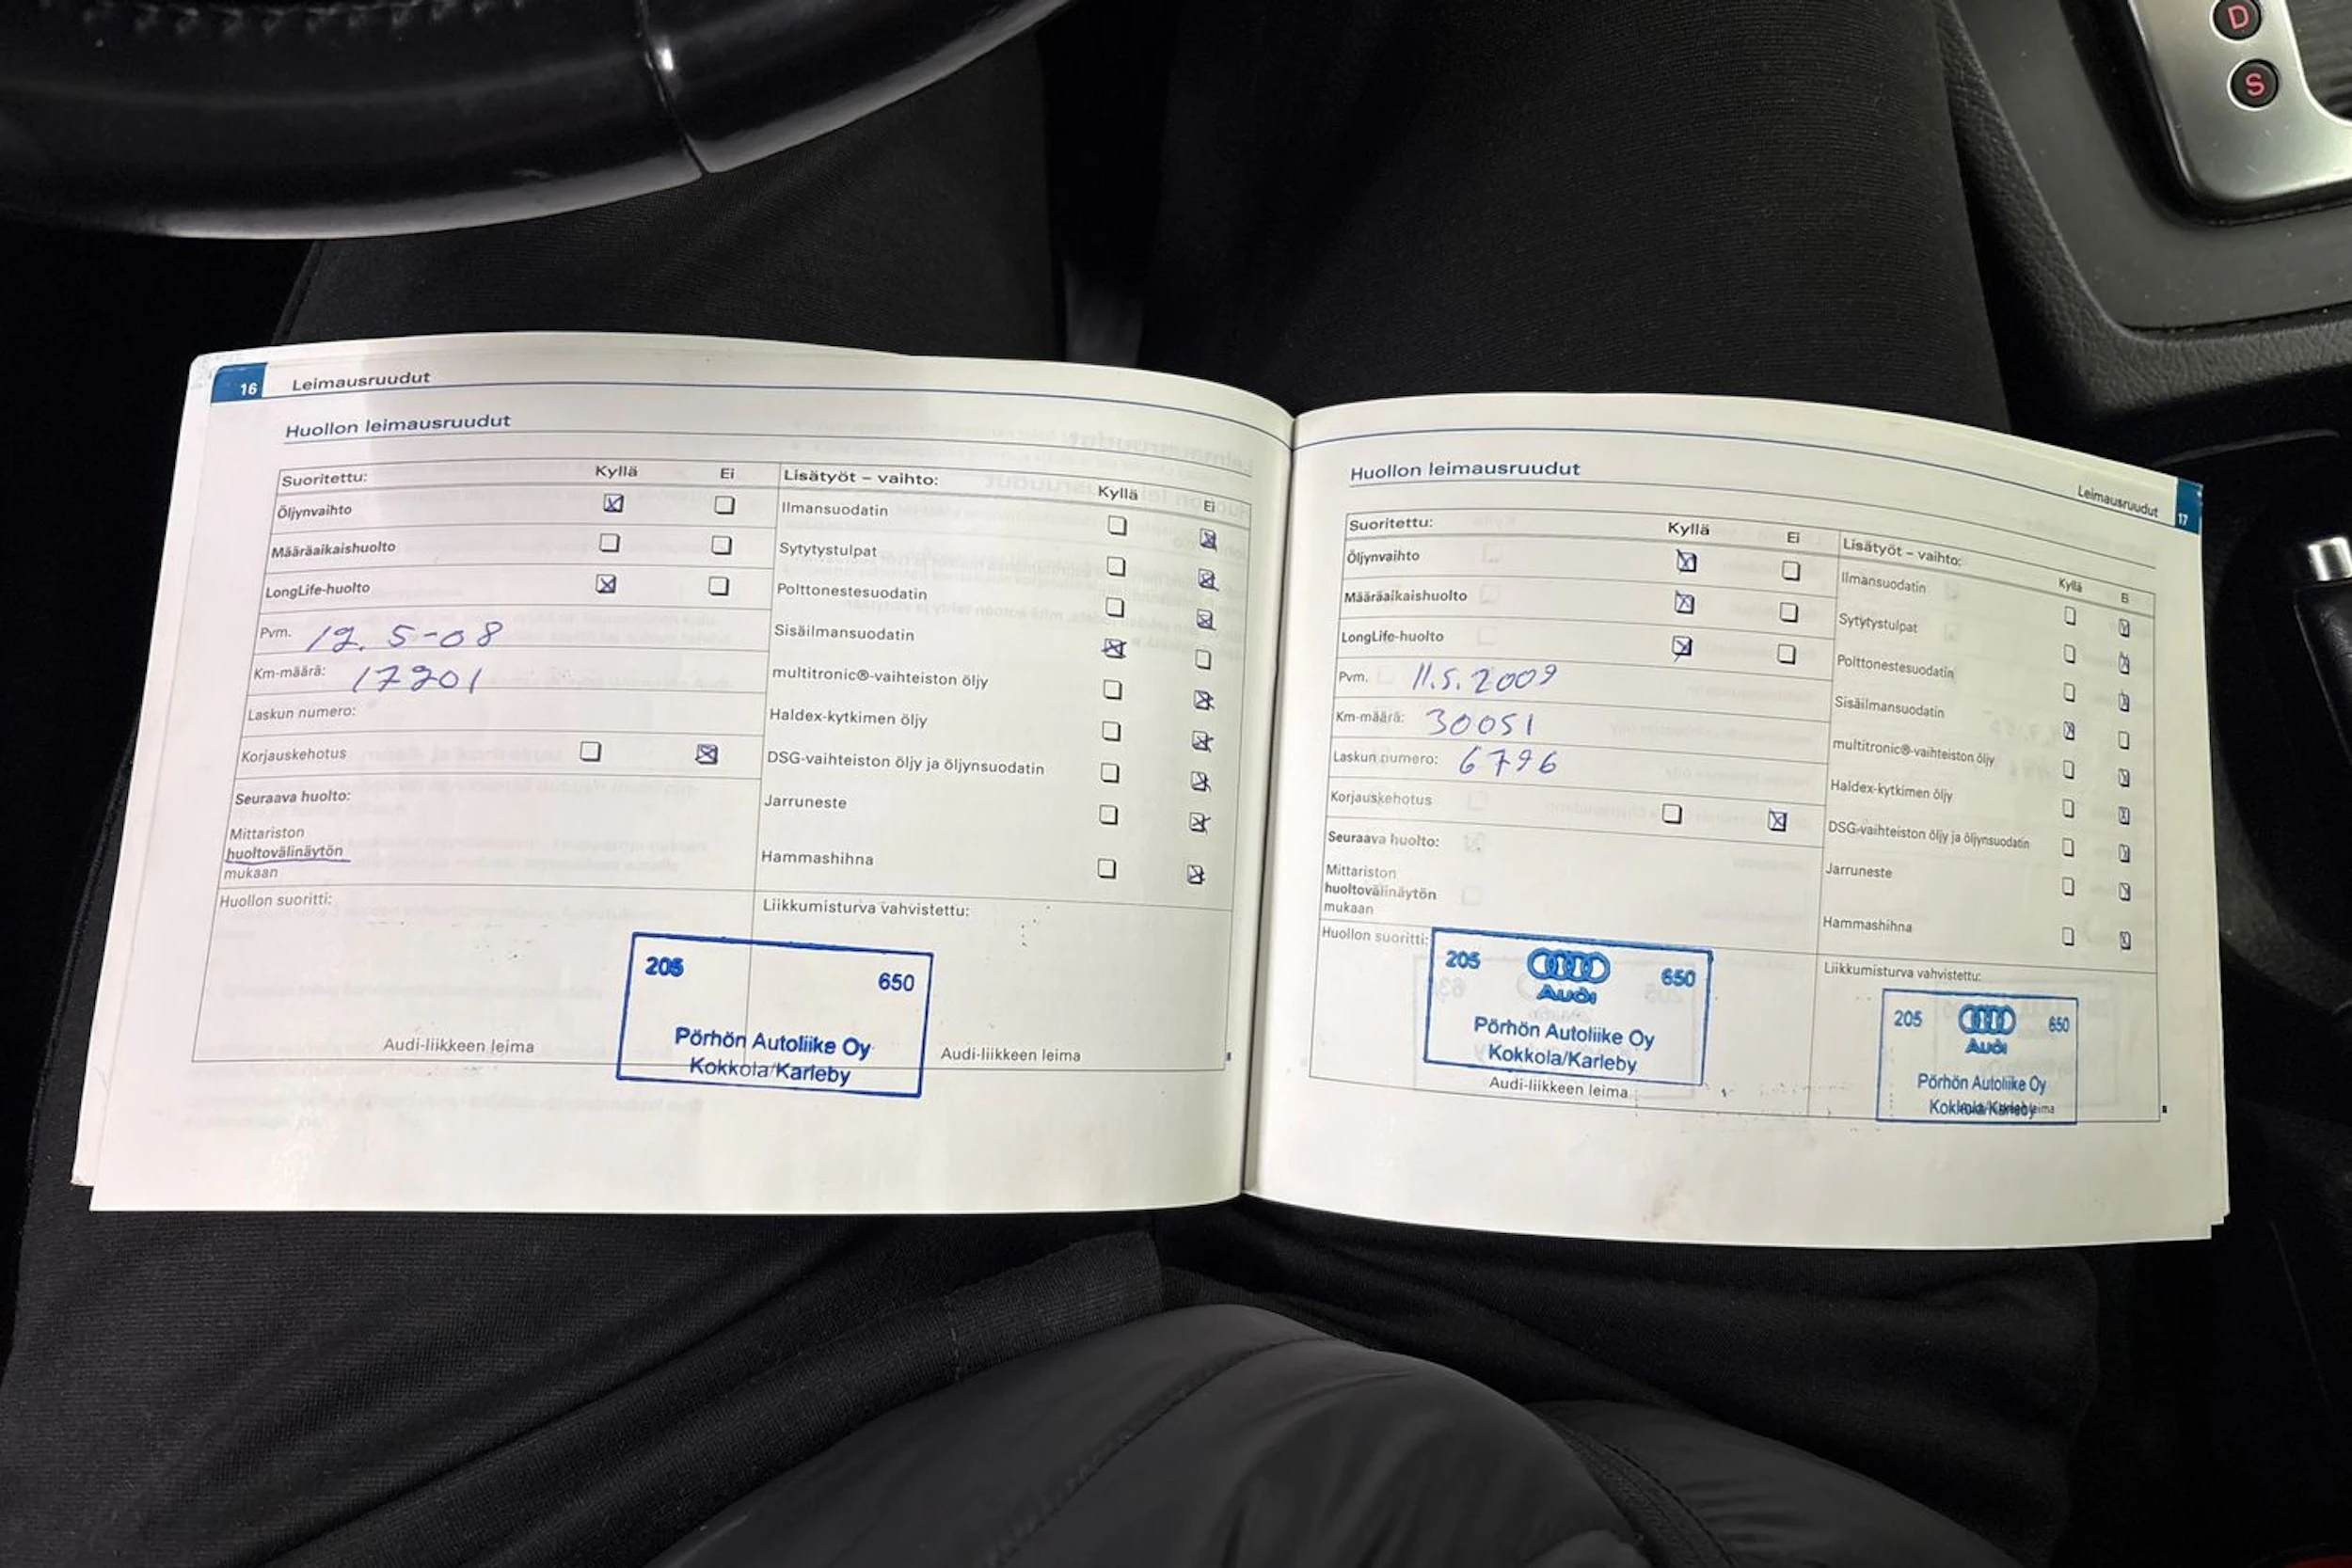 D
S
16 Leimausruudut
Huollon leimausruudut
Suoritettu: Kyllä Ei
Öljynvaihto
Määräaikaishuolto
LongLife-huolto
Pvm. 12. 5-08
Km-määrä: 17201
Laskun numero:
Korjauskehotus
Seuraava huolto:
Mittariston
huoltovälinäytön
mukaan
Huollon suoritti:
Audi-liikkeen leima
Lisätyöt – vaihto: Kyllä Ei
Ilmansuodatin
Sytytystulpat
Polttonestesuodatin
Sisäilmansuodatin
multitronic®-vaihteiston öljy
Haldex-kytkimen öljy
DSG-vaihteiston öljy ja öljynsuodatin
Jarruneste
Hammashihna
Liikkumisturva vahvistettu:
205 650
Pörhön Autoliike Oy
Kokkola/Karleby
Audi-liikkeen leima
Leimausruudut 17
Huollon leimausruudut
Suoritettu: Kyllä Ei
Öljynvaihto
Määräaikaishuolto
LongLife-huolto
Pvm. 11.5.2009
Km-määrä: 30051
Laskun numero: 6796
Korjauskehotus
Seuraava huolto:
Mittariston
huoltovälinäytön
mukaan
Huollon suoritti:
205 650
Audi
Pörhön Autoliike Oy
Kokkola/Karleby
Audi-liikkeen leima
Lisätyöt – vaihto: Kyllä Ei
Ilmansuodatin
Sytytystulpat
Polttonestesuodatin
Sisäilmansuodatin
multitronic®-vaihteiston öljy
Haldex-kytkimen öljy
DSG-vaihteiston öljy ja öljynsuodatin
Jarruneste
Hammashihna
Liikkumisturva vahvistettu:
205 650
Audi
Pörhön Autoliike Oy
Kokkola/Karleby